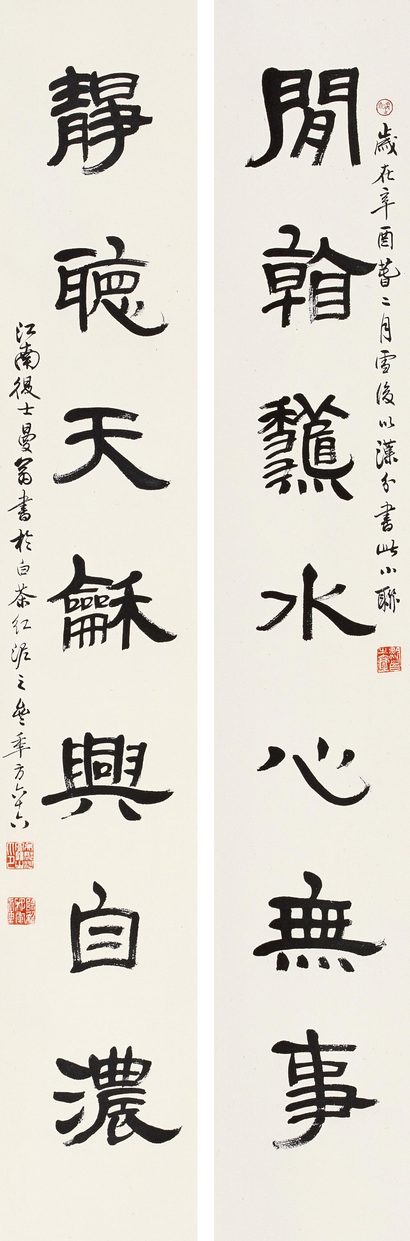 歲在辛酉萅二月雪後以漢分書此小聯
閒看龝水心無事
靜聽天龢興自濃
江南後士曼翁書於白茶紅泥之 年方六十六